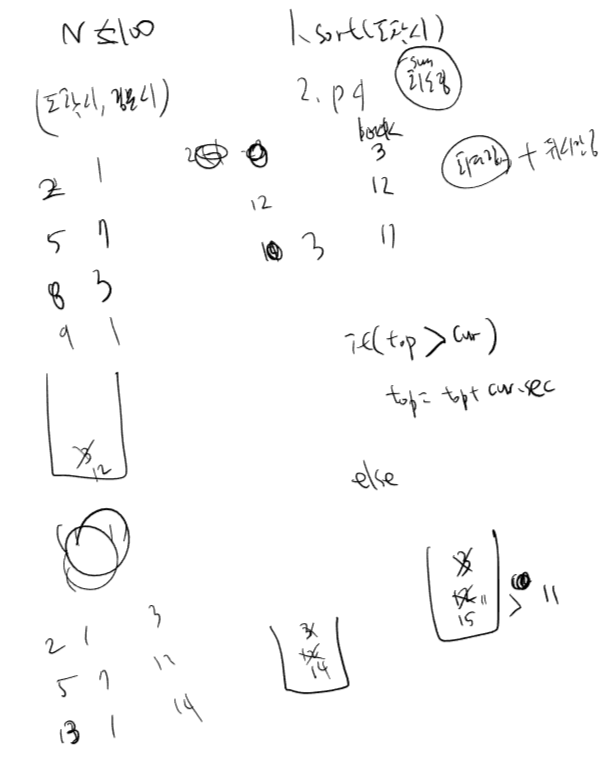 N ≤ 100
1. sort(도착시)
(도착시, 검문시)
2. pq
sum
back
3
2 1
12
12
5 7
3
17
8 3
9 1
if(top > cur)
top = top + cur.sec
3
12
else
3
12 11
15
> 11
2 1 3
5 7 12
13 1 14
3
12
14